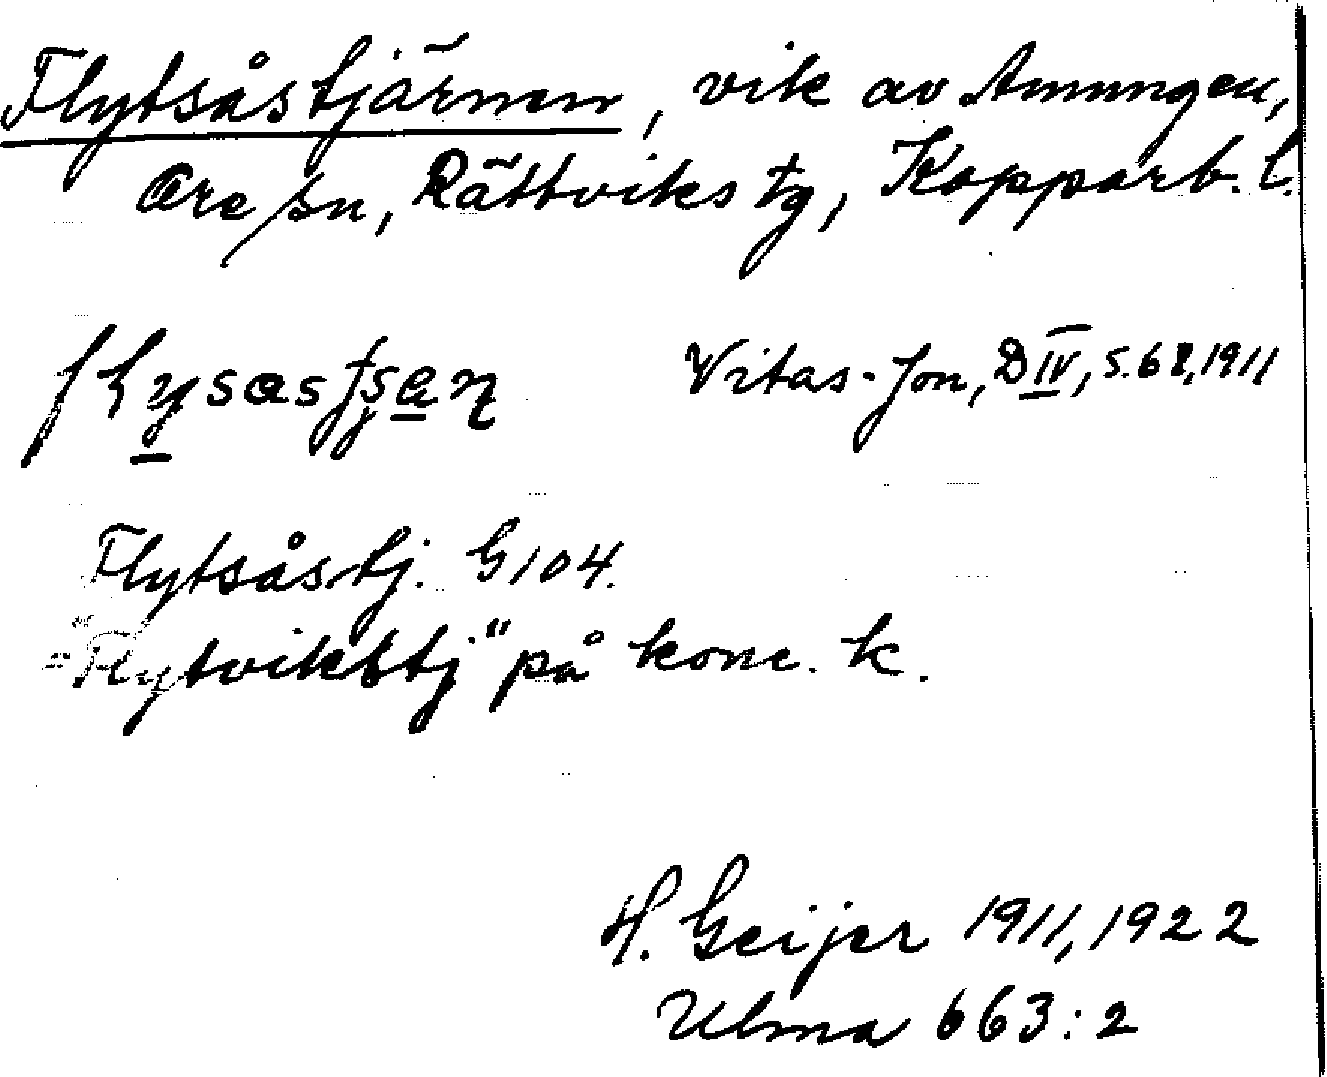 Flytsåstjärnen, vik av Amungen,
Ore sn, Rättviks tg, Kopparb. l.
Vitas-Jon, D IV, s. 68, 1911
Flytsåstj. G 104.
"Flytvikstj" på konc. k.
H. Geijer 1911, 1922
Ulma 663:2